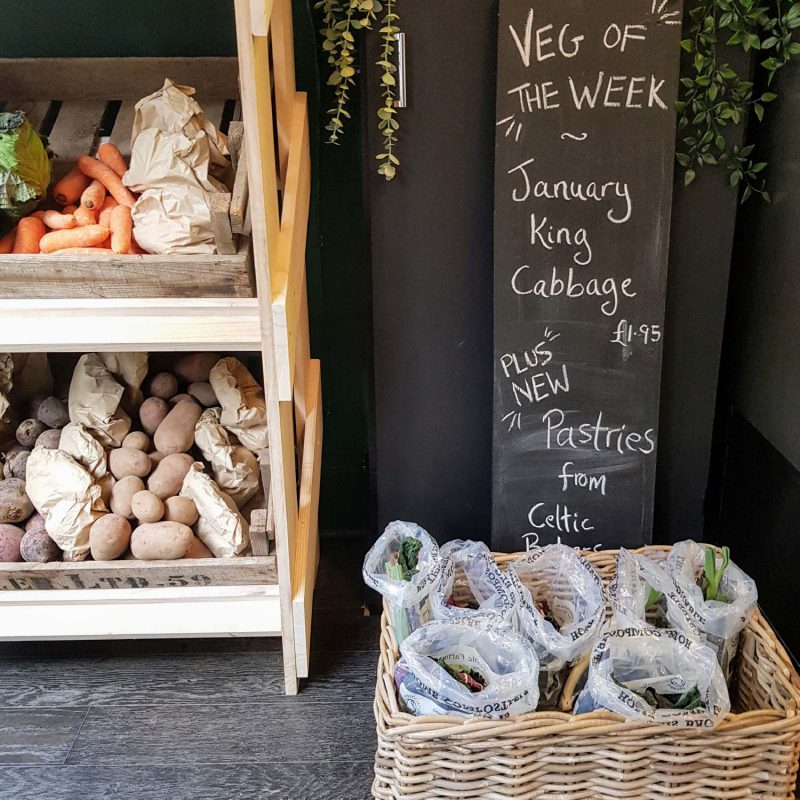 VEG OF
THE WEEK
~
January
King
Cabbage
£1.95
PLUS
NEW
Pastries
from
Celtic
LTD 59
HOME COMPOSTABLE